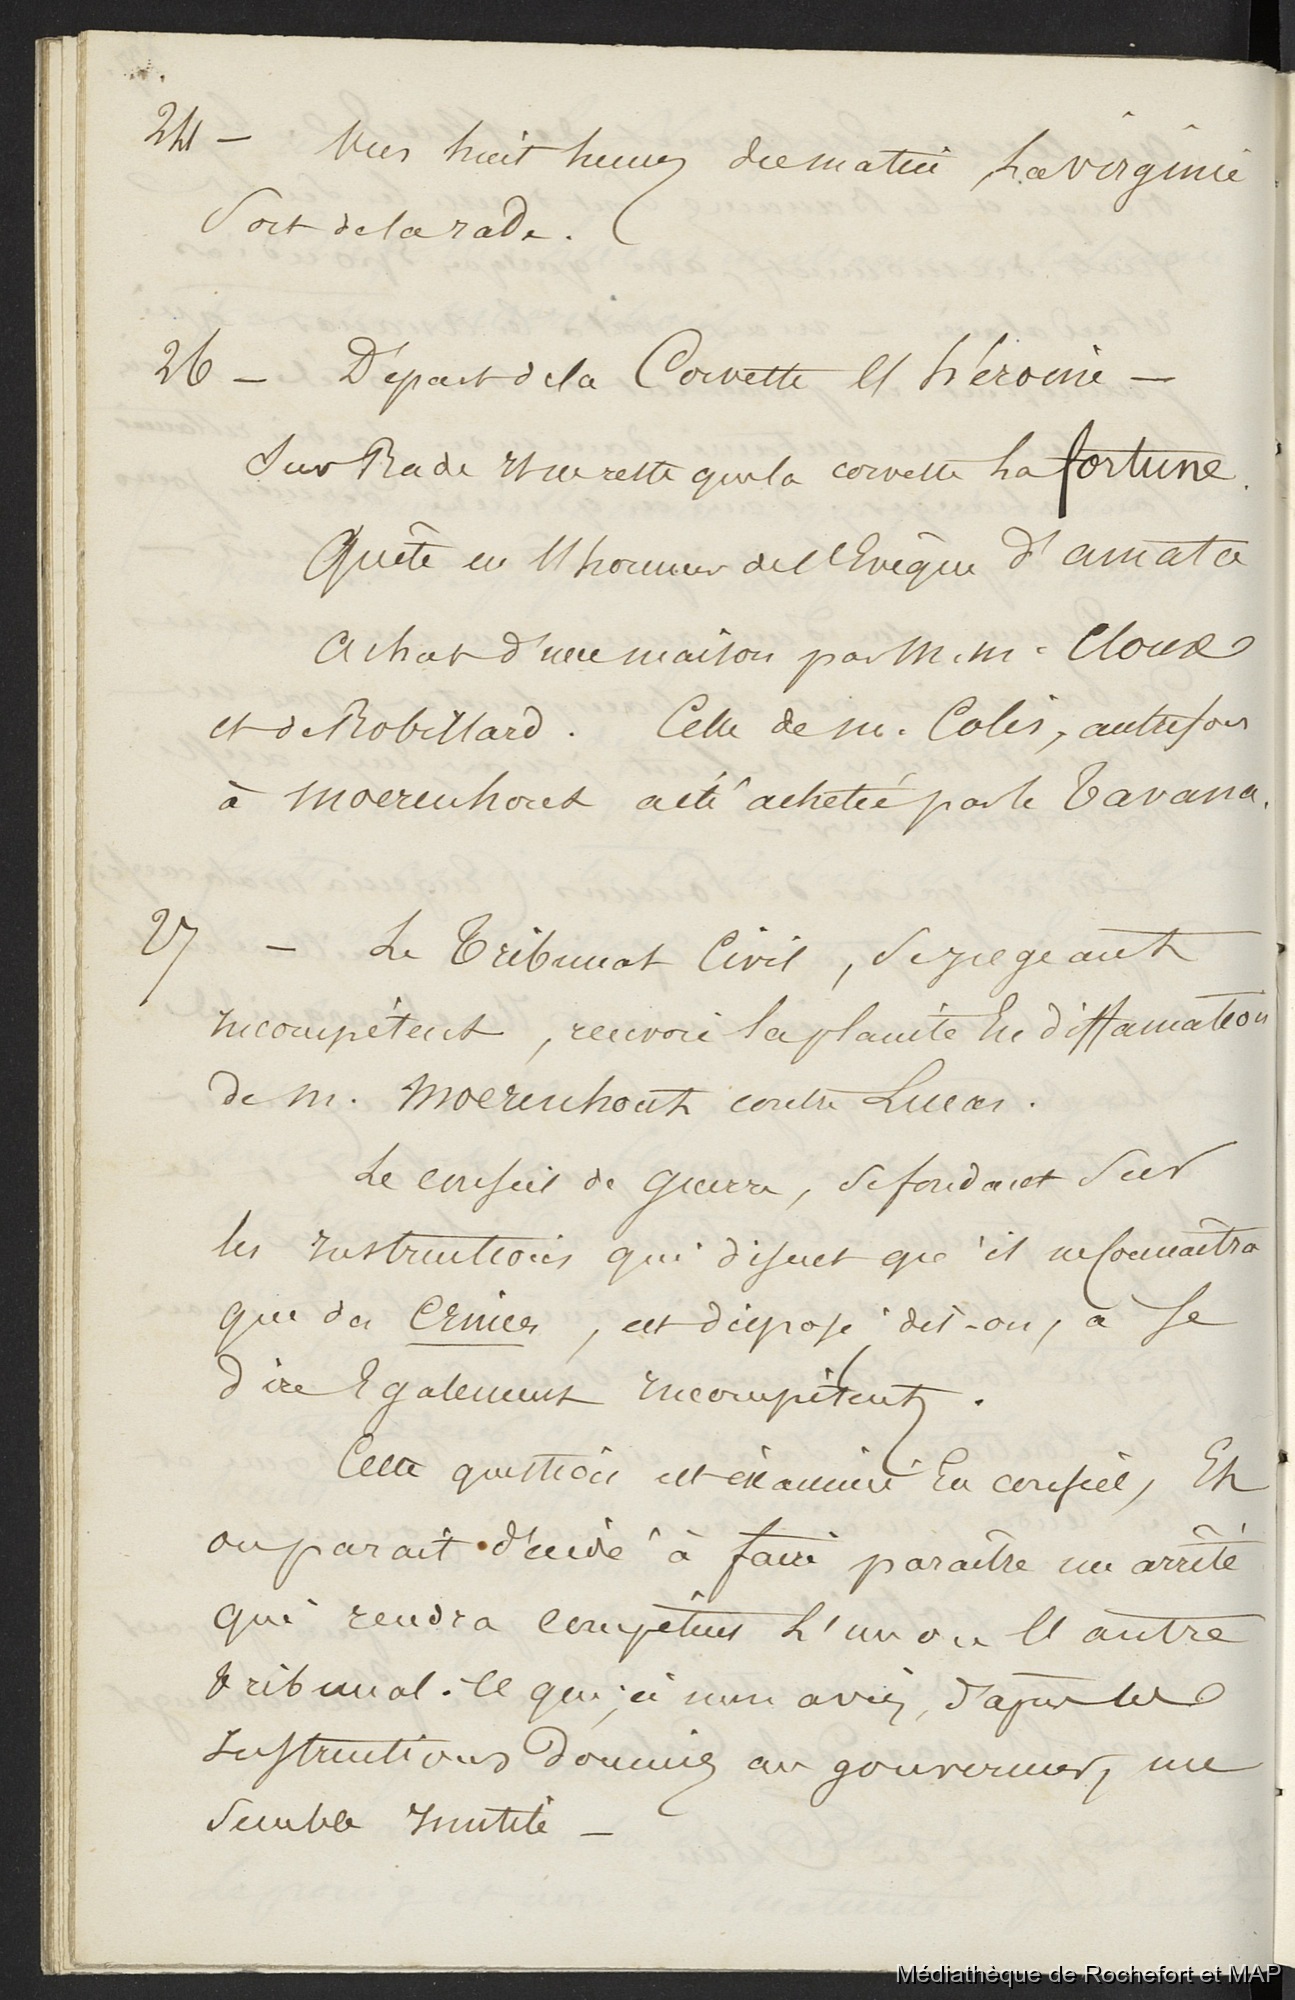 24 - Vers huit heures du matin, La virginie
Sort de la rade.
26 - Départ de la Corvette l'héroine -
Sur Rade il ne reste que la corvette La fortune.
Quête en l'honneur de l'Evêque d'amata
Achat d'une maison par M.M. Cloux
et de Robillard. Celle de M. Colis, autrefois
à Moerenhout a été achetée par le Tavana.
27 - Le Tribunal Civil, se jugeant
incompétent, renvoie la plainte En diffamation
de M. Moerenhout contre Lucas.
Le conseil de guerre, se fondant sur
les instructions qui disent qu'il ne connaîtra
que des Crimes, est disposé, dit-on, à se
dire Egalement incompétent.
Cette question est éxaminé En conseil, Et
on parait décidé à faire paraître un arrêté
qui rendra compétent L'un ou l'autre
tribunal. Ce qui, à mon avis, d'après les
Instructions données au gouverneur, me
semble inutile -
Médiathèque de Rochefort et MAP